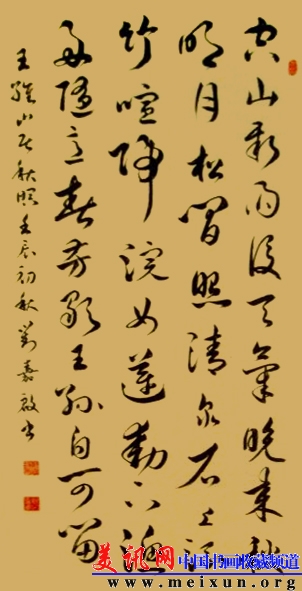 空山新雨後天氣晚來秋
明月松間照清泉石上流
竹喧歸浣女蓮動下漁
舟隨意春芳歇王孫自可留
王維山居秋暝壬辰初秋劉嘉啟书
美讯网 中国书画收藏频道
www.meixun.org